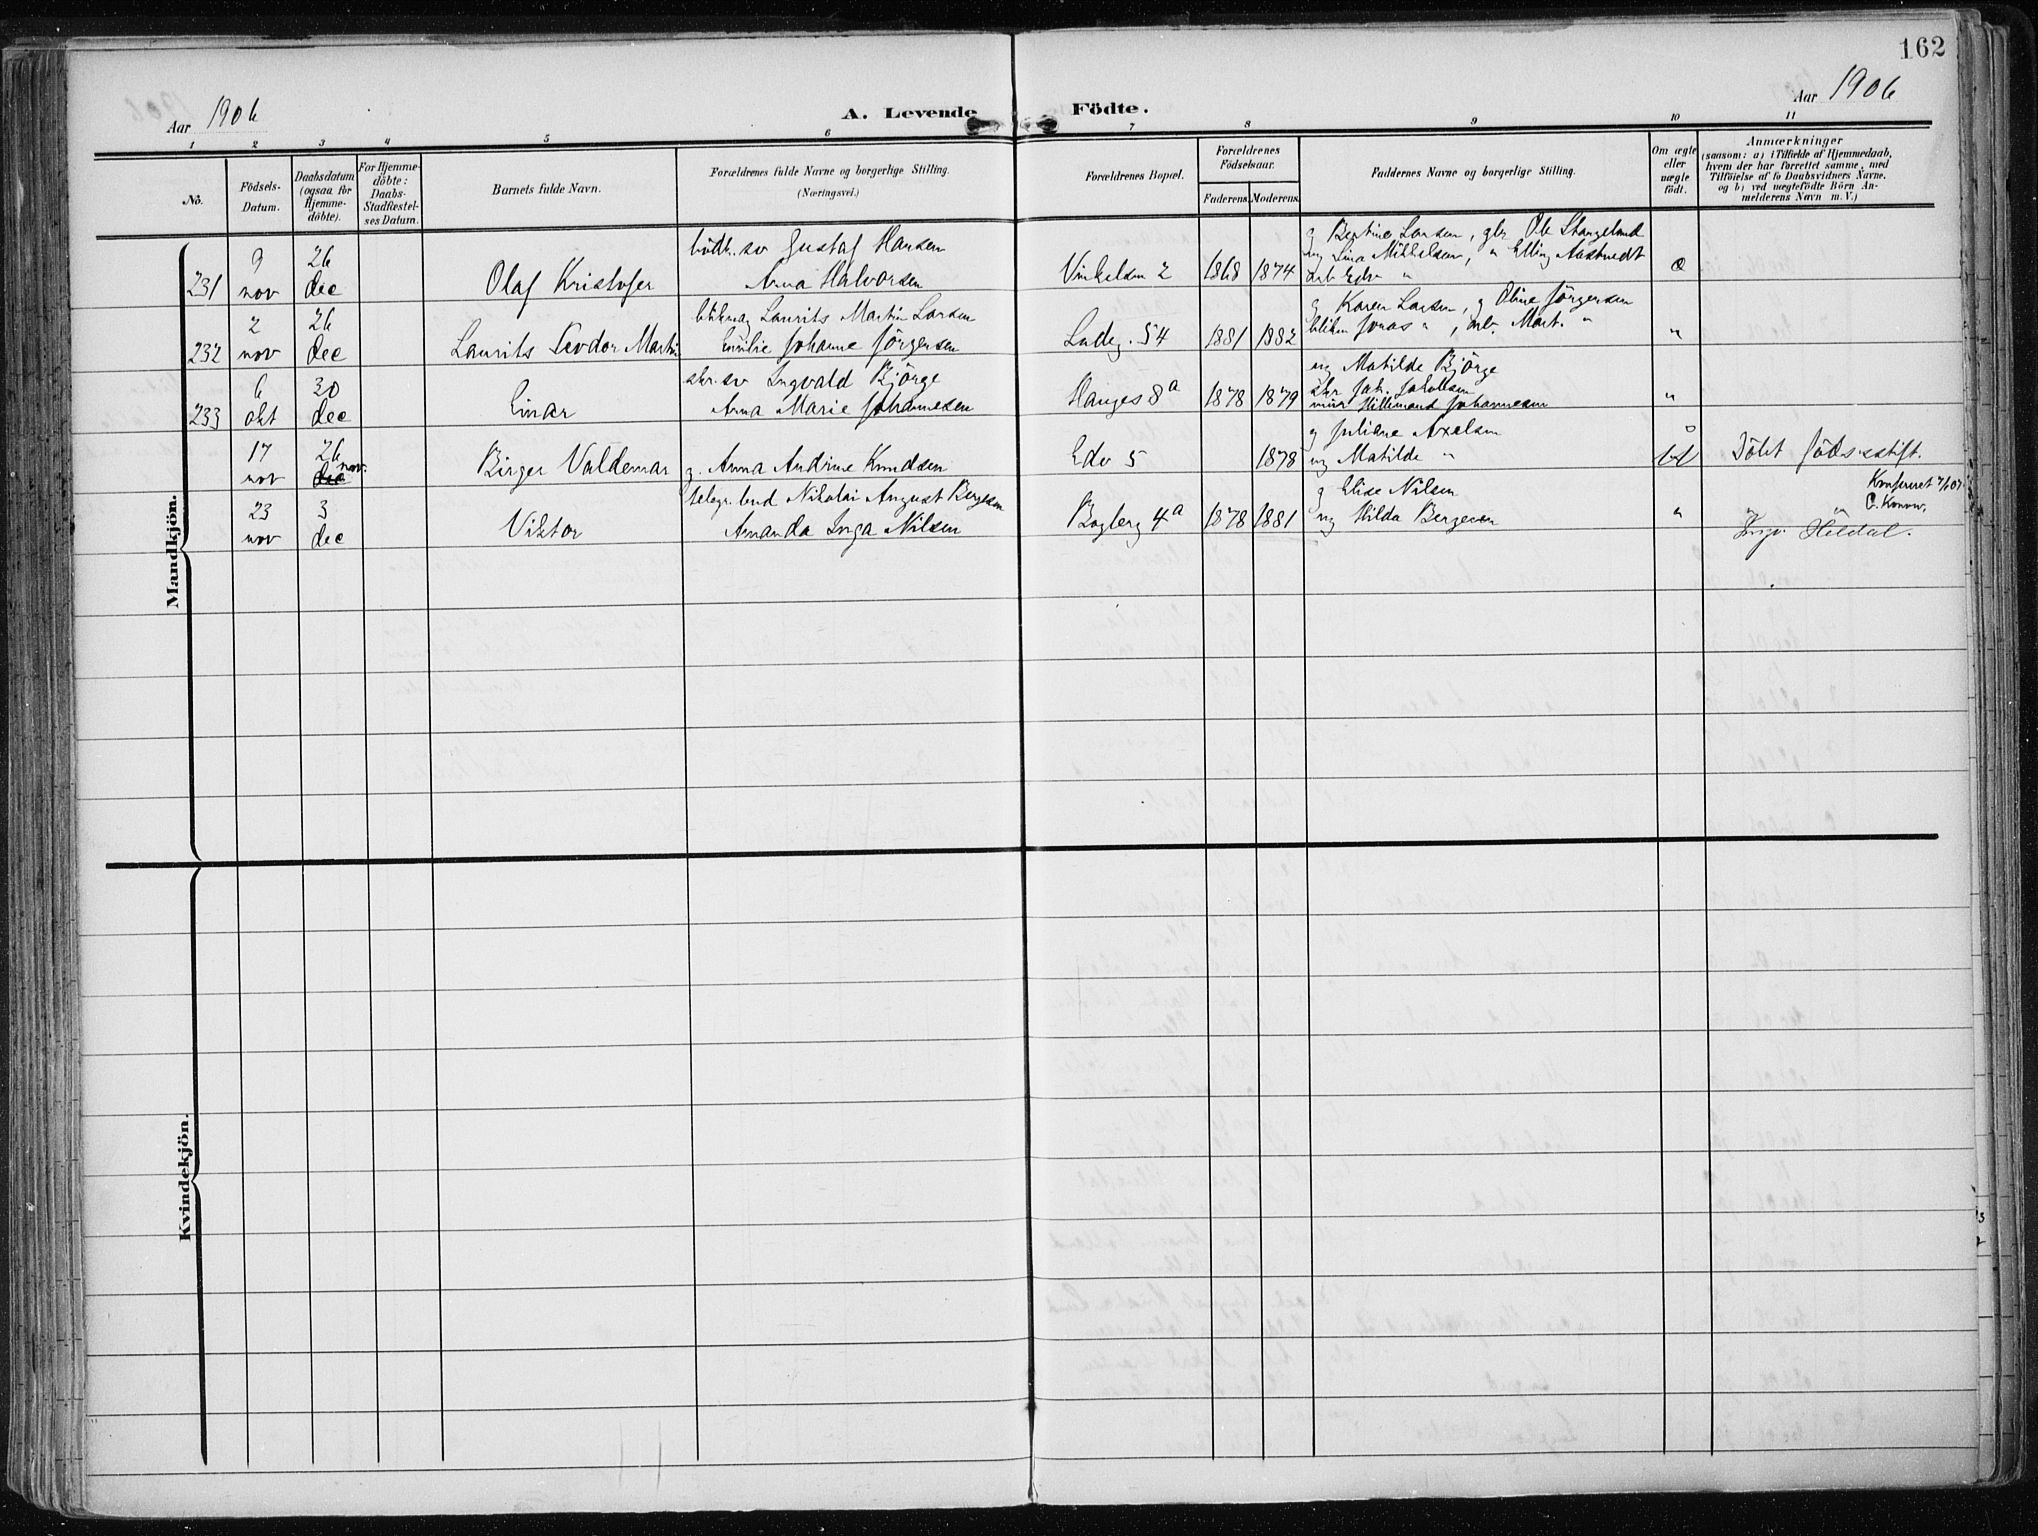 162
Aar 1906
A. Levende Födte.
Aar 1906
1 2 3 4 5 6 7 8 9 10 11
No.
Födsels-Datum.
Daabsdatum (ogsaa for Hjemmedöbte).
For Hjemmedöbte: Daabs-Stadfæstelses Datum.
Barnets fulde Navn.
Forældrenes fulde Navne og borgerlige Stilling.
(Næringsvei.)
Forældrenes Bopæl.
Forældrenes Födselsaar.
Faderens. Moderens.
Faddernes Navne og borgerlige Stilling.
Om ægte eller uægte födt.
Anmærkninger
(saasom: a) i Tilfælde af Hjemmedaab, hvem der har forrettet samme, med Tilföielse af to Daabsvidners Navne. og b) ved uægtefödte Börn Anmelderens Navn m. V.)
Mandkjön.
231 9 nov 26 dec Olaf Kristofer
bödk.sv Gustaf Hansen
Anna Halvorsen
Vinkelsm 2 1868 1874
g Bertine Larsen, gbr Ole Stangeland
ug Lina Mikkelsen, " Elling Aastvedt
arb Edv "
æ
232 2 nov 26 dec Laurits Teodor Martin
Laurits Martin Larsen
Emilie Johanne Jörgensen
Ladeg. 54 1881 1882
g Karen Larsen, g Oline Jörgensen
Jonas ", Mart. "
"
233 6 okt 30 dec Einar
skr.sv Ingvald Björge
Anna Marie Johannesen
Hauges 8a 1878 1879
ug Matilde Björge
skr Joh. Jakobsen
Johannesen
"
17 nov 26 nov. dec Birger Valdemar
g. Anna Andrine Knudsen
Edv 5 1878
g Juliane Axelsen
ug Matilde "
U
Döbt föds.stift.
Konfereret 7/1 07
C. Konow.
23 nov 3 dec Viktor
telegr.bud Nikolai August Bergesen
Amanda Inga Nilsen
Bogberg 4a 1878 1881
g Elise Nilsen
ug Hilda Bergesen
" " "
Ingv. Heldal.
Kvindekjön.